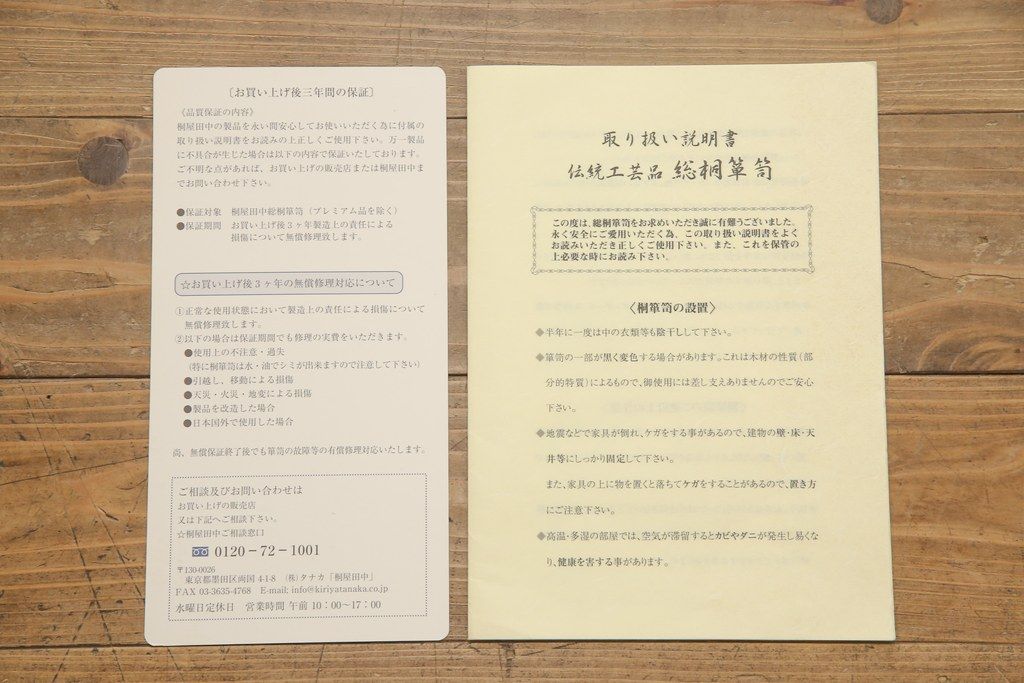 〔お買い上げ後三年間の保証〕
《品質保証の内容》
桐屋田中の製品を永い間安心してお使いいただく為に付属の
取り扱い説明書をお読みの上正しくご使用下さい。万一製品
に不具合が生じた場合は以下の内容で保証いたしております。
ご不明な点があれば、お買い上げの販売店または桐屋田中ま
でお問い合わせ下さい。
●保証対象 桐屋田中総桐箪笥（プレミアム品を除く）
●保証期間 お買い上げ後3ヶ年製造上の責任による
損傷について無償修理致します。
☆お買い上げ後3ヶ年の無償修理対応について
①正常な使用状態において製造上の責任による損傷について
無償修理致します。
②以下の場合は保証期間でも修理の実費をいただきます。
●使用上の不注意・過失
（特に桐箪笥は水・油でシミが出来ますので注意して下さい）
●引越し、移動による損傷
●天災・火災・地変による損傷
●製品を改造した場合
●日本国外で使用した場合
尚、無償保証終了後でも箪笥の故障等の有償修理対応いたします。
ご相談及びお問い合わせは
お買い上げの販売店
又は下記へご相談下さい。
☆桐屋田中ご相談窓口
0120－72－1001
〒130-0026
東京都墨田区両国 4-1-8 （株）タナカ「桐屋田中」
FAX 03-3635-4768 E-mail; info@kiriyatanaka.co.jp
水曜日定休日 営業時間 午前 10：00〜17：00
取り扱い説明書
伝統工芸品 総桐箪笥
この度は、総桐箪笥をお求めいただき誠に有難うございました。
永く安全にご愛用いただく為、この取り扱い説明書をよく
お読みいただき正しくご使用下さい。また、これを保管の
上必要な時にお読み下さい。
〈桐箪笥の設置〉
◆半年に一度は中の衣類等も陰干しして下さい。
◆箪笥の一部が黒く変色する場合があります。これは木材の性質（部
分的特質）によるもので、御使用には差し支えありませんのでご安心
下さい。
◆地震などで家具が倒れ、ケガをする事があるので、建物の壁・床・天
井等にしっかり固定して下さい。
また、家具の上に物を置くと落ちてケガをすることがあるので、置き方
にご注意下さい。
◆高温・多湿の部屋では、空気が滞留するとカビやダニが発生し易くな
り、健康を害する事があります。